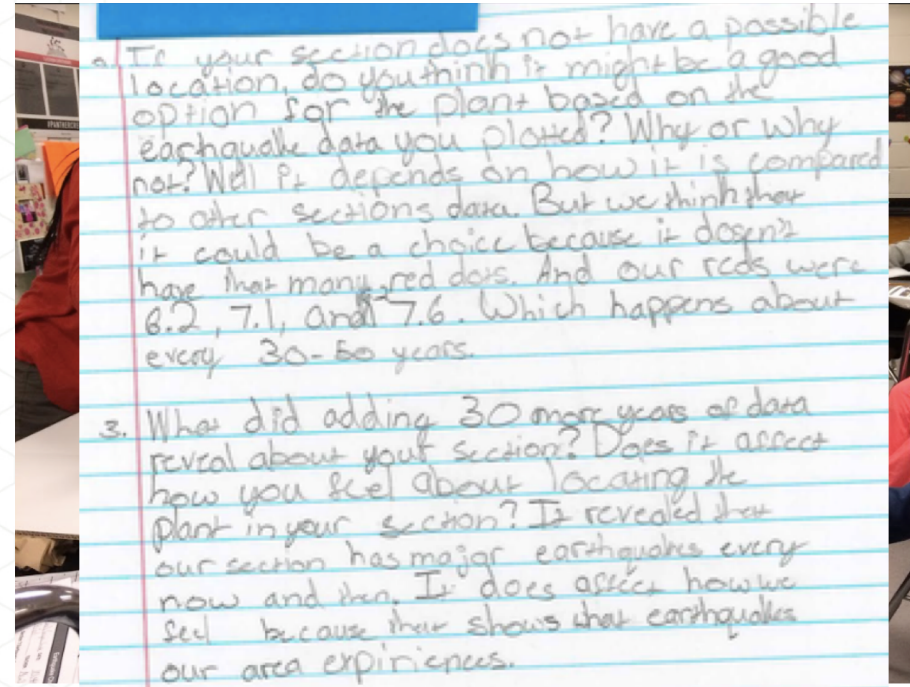 • If your section does not have a possible
location, do you think it might be a good
option for the plant based on the
earthquake data you plotted? Why or why
not? Well it depends on how it is compared
to other sections data. But we think that
it could be a choice because it dosen't
have that many red dots. And our reds were
6.2, 7.1, and 7.6. Which happens about
every 30-50 years.
3. What did adding 30 more years of data
reveal about your section? Does it affect
how you feel about locating the
plant in your section? It revealed that
our section has major earthquakes every
now and then. It does affect how we
feel because that shows what earthquakes
our area expiriences.